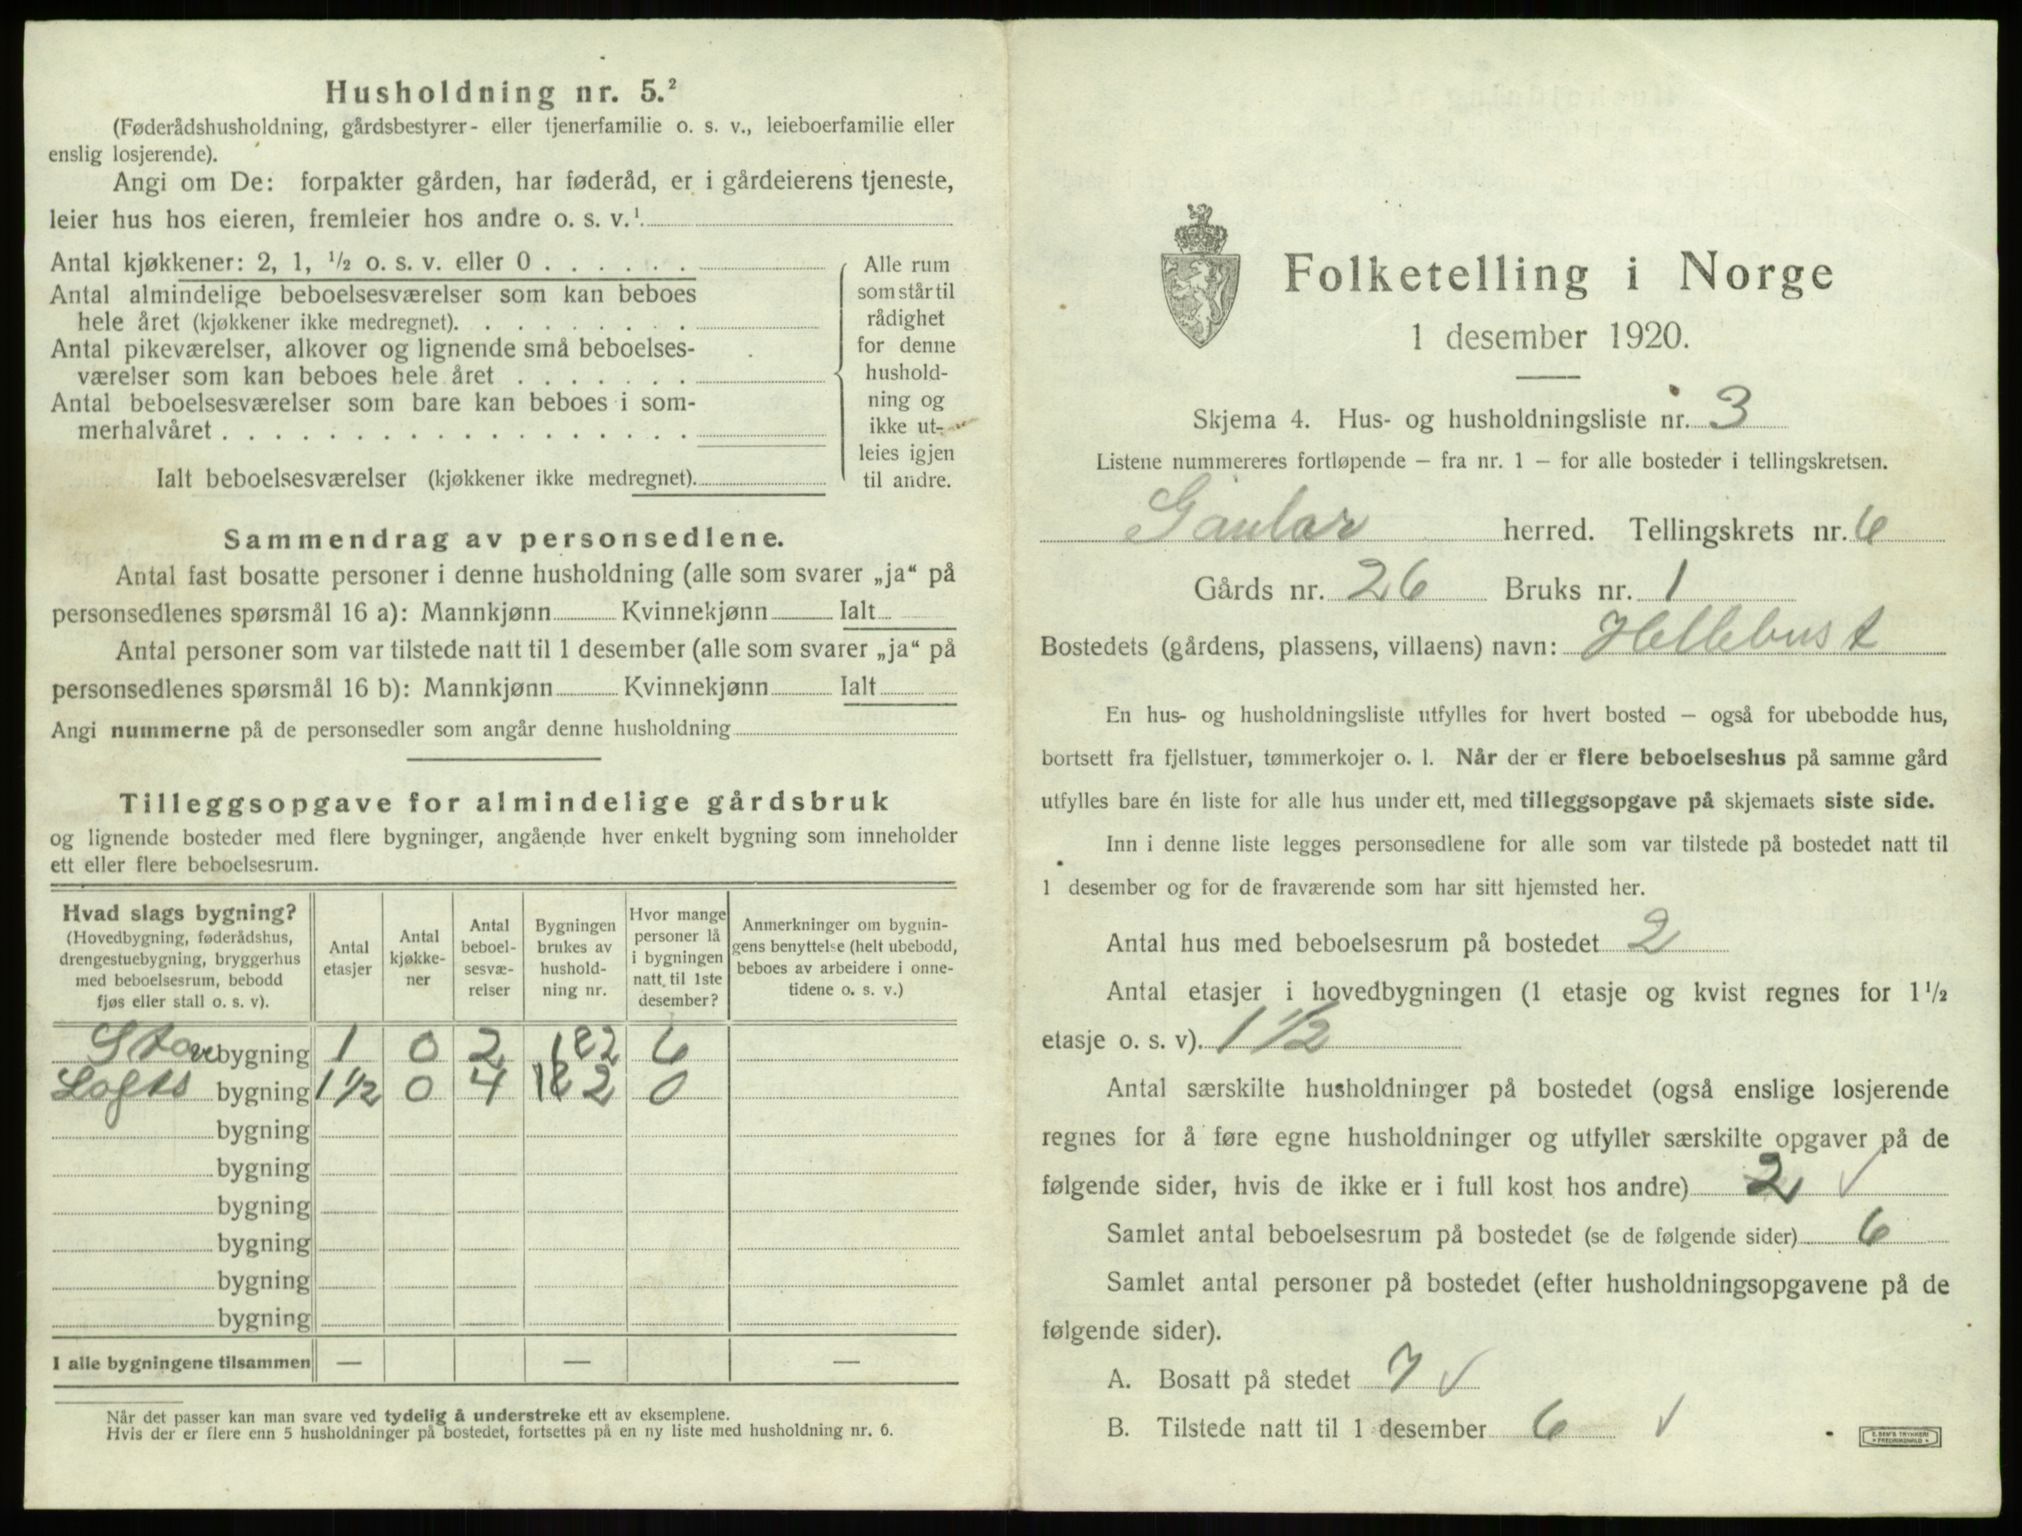 Husholdning nr. 5.²
(Føderådshusholdning, gårdsbestyrer- eller tjenerfamilie o. s. v., leieboerfamilie eller
enslig losjerende).
Angi om De: forpakter gården, har føderåd, er i gårdeierens tjeneste,
leier hus hos eieren, fremleier hos andre o. s. v.¹
Antal kjøkkener: 2, 1, ½ o. s. v. eller 0 . . . . . .
Antal almindelige beboelsesværelser som kan beboes
hele året (kjøkkener ikke medregnet). . . . . . . . .
Antal pikeværelser, alkover og lignende små beboelses-
værelser som kan beboes hele året . . . . . . .
Antal beboelsesværelser som bare kan beboes i som-
merhalvåret . . . . . . . . . . . . . . . . . .
Ialt beboelsesværelser (kjøkkener ikke medregnet).
Alle rum
som står til
rådighet
for denne
hushold-
ning og
ikke ut-
leies igjen
til andre.
Sammendrag av personsedlene.
Antal fast bosatte personer i denne husholdning (alle som svarer „ja“ på
personsedlenes spørsmål 16 a): Mannkjønn Kvinnekjønn Ialt
Antal personer som var tilstede natt til 1 desember (alle som svarer „ja“ på
personsedlenes spørsmål 16 b): Mannkjønn Kvinnekjønn Ialt
Angi nummerne på de personsedler som angår denne husholdning
Tilleggsopgave for almindelige gårdsbruk
og lignende bosteder med flere bygninger, angående hver enkelt bygning som inneholder
ett eller flere beboelsesrum.
Hvad slags bygning?
(Hovedbygning, føderådshus,
drengestuebygning, bryggerhus
med beboelsesrum, bebodd
fjøs eller stall o. s. v).
Antal
etasjer
Antal
kjøkke-
ner
Antal
beboel-
sesvæ-
relser
Bygningen
brukes av
hushold-
ning nr.
Hvor mange
personer lå
i bygningen
natt til 1ste
desember?
Anmerkninger om bygnin-
gens benyttelse (helt ubebodd,
beboes av arbeidere i onne-
tidene o. s. v.)
Stove bygning 1 0 2 1 & 2 6
Lofts bygning 1 ½ 0 4 1 & 2 0
bygning
bygning
bygning
bygning
bygning
bygning
I alle bygningene tilsammen — — —
Når det passer kan man svare ved tydelig å understreke ett av eksemplene.
Hvis der er flere enn 5 husholdninger på bostedet, fortsettes på en ny liste med husholdning nr. 6.
Folketelling i Norge
1 desember 1920.
Skjema 4. Hus- og husholdningsliste nr. 3
Listene nummereres fortløpende – fra nr. 1 – for alle bosteder i tellingskretsen.
Gaular herred. Tellingskrets nr. 6
Gårds nr. 26 Bruks nr. 1
Bostedets (gårdens, plassens, villaens) navn: Hellebust
En hus- og husholdningsliste utfylles for hvert bosted – også for ubebodde hus,
bortsett fra fjellstuer, tømmerkojer o. l. Når der er flere beboelseshus på samme gård
utfylles bare én liste for alle hus under ett, med tilleggsopgave på skjemaets siste side.
Inn i denne liste legges personsedlene for alle som var tilstede på bostedet natt til
1 desember og for de fraværende som har sitt hjemsted her.
Antal hus med beboelsesrum på bostedet 2
Antal etasjer i hovedbygningen (1 etasje og kvist regnes for 1½
etasje o. s. v). 1 ½
Antal særskilte husholdninger på bostedet (også enslige losjerende
regnes for å føre egne husholdninger og utfyller særskilte opgaver på de
følgende sider, hvis de ikke er i full kost hos andre) 2 ✓
Samlet antal beboelsesrum på bostedet (se de følgende sider) 6
Samlet antal personer på bostedet (efter husholdningsopgavene på de
følgende sider).
A. Bosatt på stedet 7 ✓
B. Tilstede natt til 1 desember 6 ✓